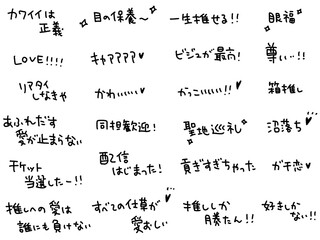 カワイイは
正義
目の保養〜
一生推せる!!
眼福
LOVE!!!!
キャアアアア♥
ビジュが最高!
尊い…!!
リアタイ
しなきゃ
かわいいい♡
かっこいいい!!
箱推し
あふれだす
愛が止まらない
同担歓迎!
聖地巡礼
沼落ち♥
チケット
当選した〜!!
配信
はじまった!
貢ぎすぎちゃった
ガチ恋♥
推しへの愛は
誰にも負けない
すべての仕草が
愛おしい
推ししか
勝たん!!
好きしか
ない!!